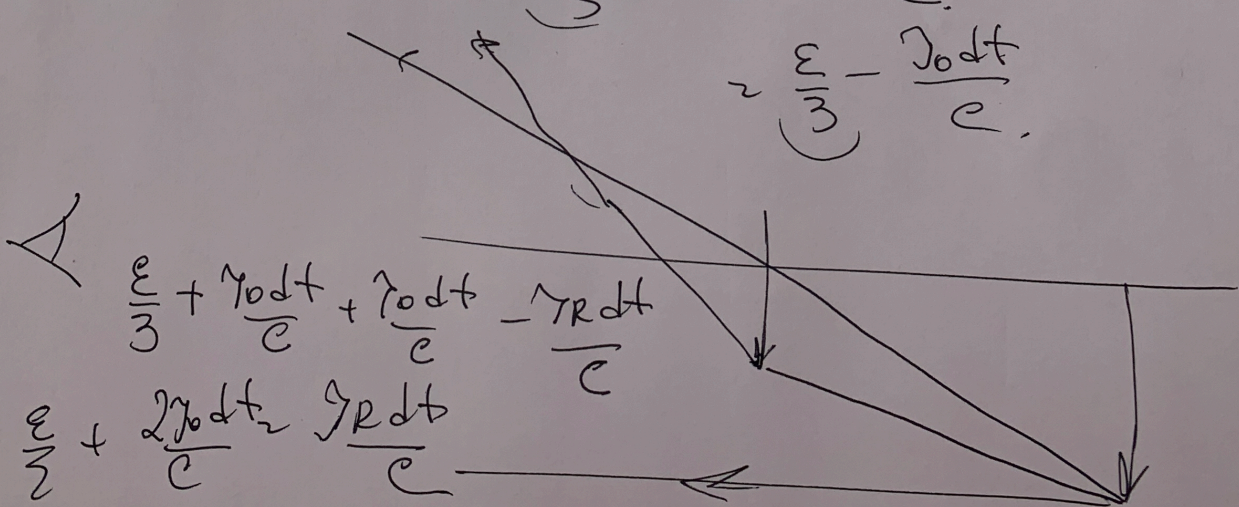 = ε/3 - J₀dt/c.
ε/3 + J₀dt/c + J₀dt/c - J_R dt/c
ε/2 + 2J₀dt/c = J_R dt/c